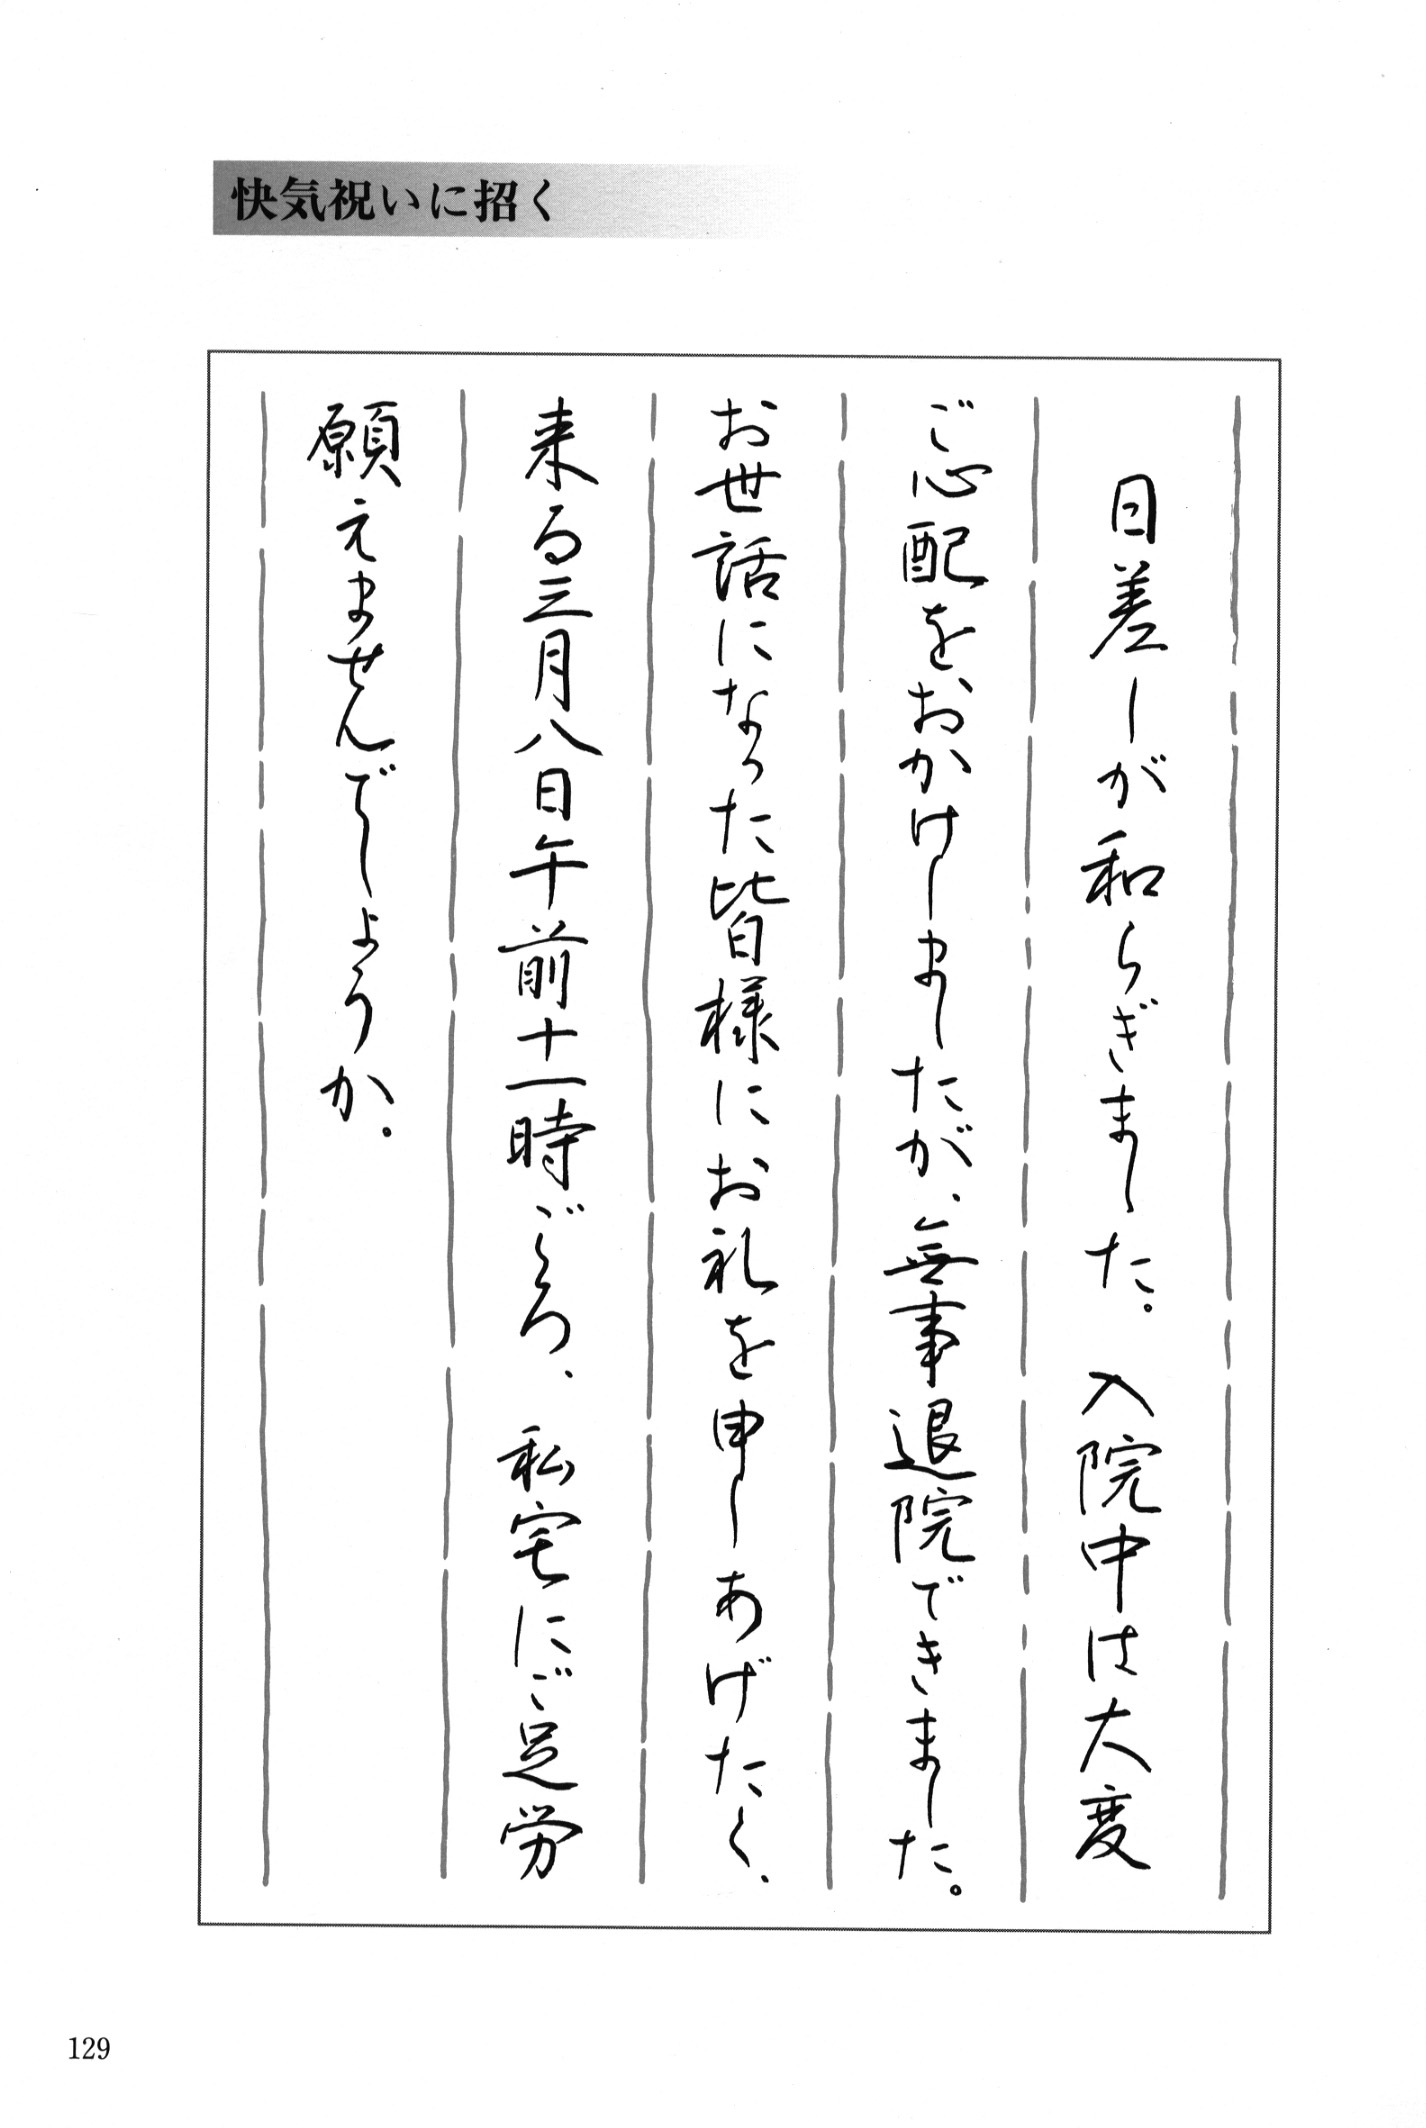 快気祝いに招く
日差しが和らぎました。入院中は大変
ご心配をおかけしましたが、無事退院できました。
お世話になった皆様にお礼を申しあげたく、
来る三月八日午前十一時ごろ、私宅にご足労
願えませんでしょうか。
129